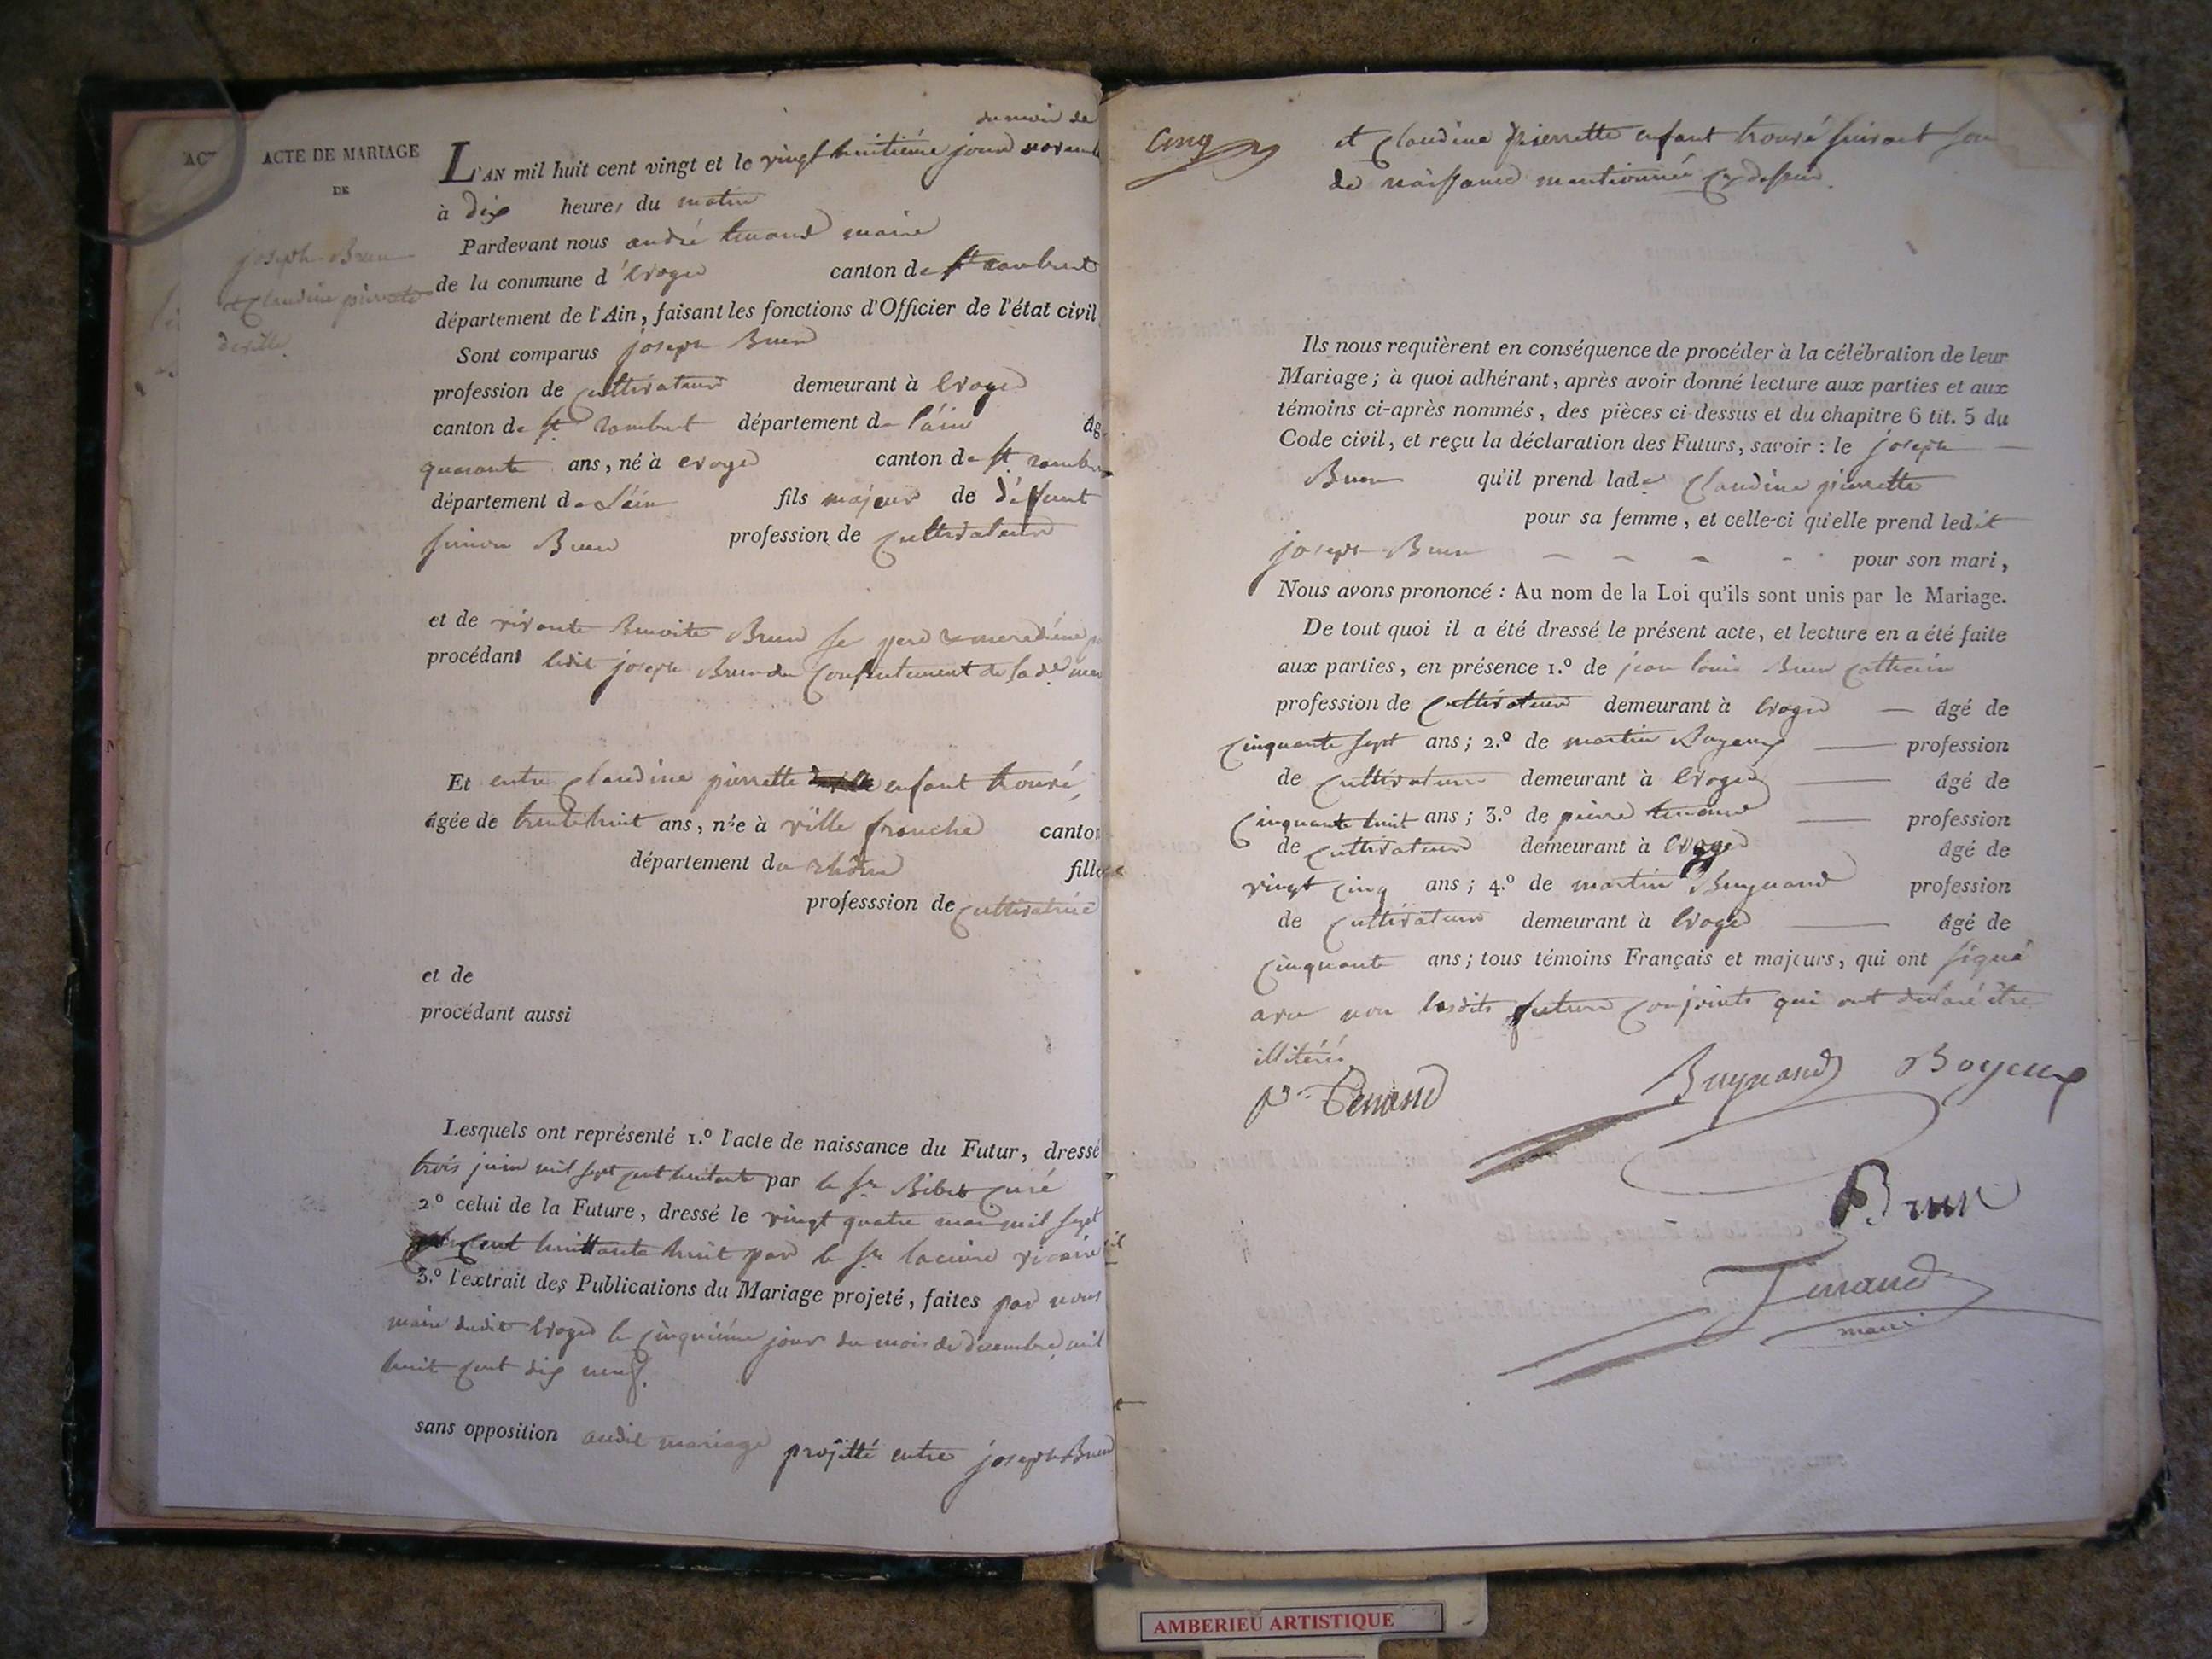 ACTE DE MARIAGE
DE
joseph Brun
et Claudine pierrette
deville
du mois de
L'AN mil huit cent vingt et le vingt huitième jour novembre
à dix heures du matin
Pardevant nous andré tenand maire
de la commune d'évoges canton de st rambert
département de l'Ain, faisant les fonctions d'Officier de l'état civil
Sont comparus joseph Brun
profession de cultivateur demeurant à Evoges
canton de st rambert département de l'ain âg
quarante ans, né à evoges canton de st rambert
département de L'ain fils majeur de défunt
simon Brun profession de cultivateur
et de vivante Benoite Brun se père & mère
procédant ledit joseph Brun du consentement de sa de mère
Et entre claudine pierrette enfant trouvé,
âgée de trente huit ans, née à ville franche canton
département du rhône fille
professsion de cultivatrice
et de
procédant aussi
Lesquels ont représenté 1.º l'acte de naissance du Futur, dressé
trois juin mil sept cent huitante par le sr Bibet curé
2º celui de la Future, dressé le vingt quatre mars mil sept
cent huittante huit par le sr vicaire
3.º l'extrait des Publications du Mariage projeté, faites par nous
maire dudit Evoges le cinquième jour du mois de décembre mil
huit cent dix neuf.
sans opposition audit mariage projetté entre joseph Brun
Cinq
et Claudine pierrette enfant trouvé suivant son
de naissance mentionnée cy dessus.
Ils nous requièrent en conséquence de procéder à la célébration de leur
Mariage; à quoi adhérant, après avoir donné lecture aux parties et aux
témoins ci-après nommés, des pièces ci-dessus et du chapitre 6 tit. 5 du
Code civil, et reçu la déclaration des Futurs, savoir : le joseph
Brun qu'il prend lade Claudine pierrette
pour sa femme, et celle-ci qu'elle prend ledit
joseph Brun pour son mari,
Nous avons prononcé : Au nom de la Loi qu'ils sont unis par le Mariage.
De tout quoi il a été dressé le présent acte, et lecture en a été faite
aux parties, en présence 1.º de jean louis Brun
profession de cultivateur demeurant à Evoges âgé de
cinquante sept ans; 2.º de martin Boyeux profession
de cultivateur demeurant à Evoges âgé de
cinquante huit ans; 3.º de pierre tenand profession
de cultivateur demeurant à Evoges âgé de
vingt cinq ans; 4.º de martin Buynand profession
de cultivateur demeurant à Evoges âgé de
cinquante ans; tous témoins Français et majeurs, qui ont signé
avec nous lesdits futurs conjoints qui ont déclaré être
illitérés
pre Tenand Buynand Boyeux
Brun
Tenand
maire
AMBERIEU ARTISTIQUE